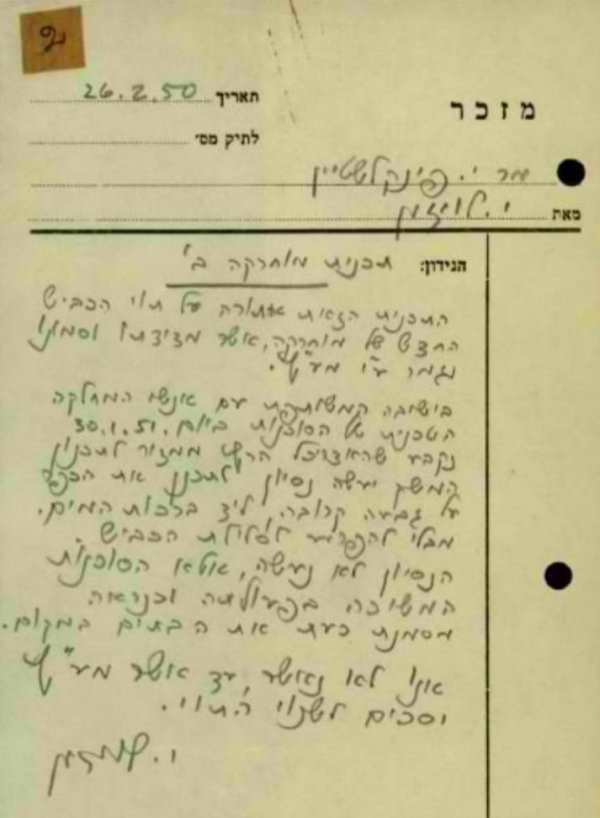 2
מזכר
תאריך 26.2.50
לתיק מס'
מר י. פינקלשטיין
מאת י. לויזון
הנידון: תכנית מוחרקה ב'
התכנית הזאת אתורה על תוי הכביש
החדש של מוחרקה, אשר מדידתו וסמונו
נגמר ע"י מע"ץ.
בישיבה המשותפת עם אנשי המחלקה
הטכנית של הסוכנות ביום 30.1.51
נקבע שהאדריכל הרץ ממזור לתכנון
המשק יעשה נסיון לתכנן את הכפר
על גבעה קרובה, ליד ברכות המים,
מבלי להפריע לסלילת הכביש.
הנסיון לא נעשה, אלא הסוכנות
המשיכה בפעולתה וכנראה
מסמנת כעת את הבתים במקום.
אנו לא נאשר, עד אשר מע"ץ
יסכים לשנוי התוי.